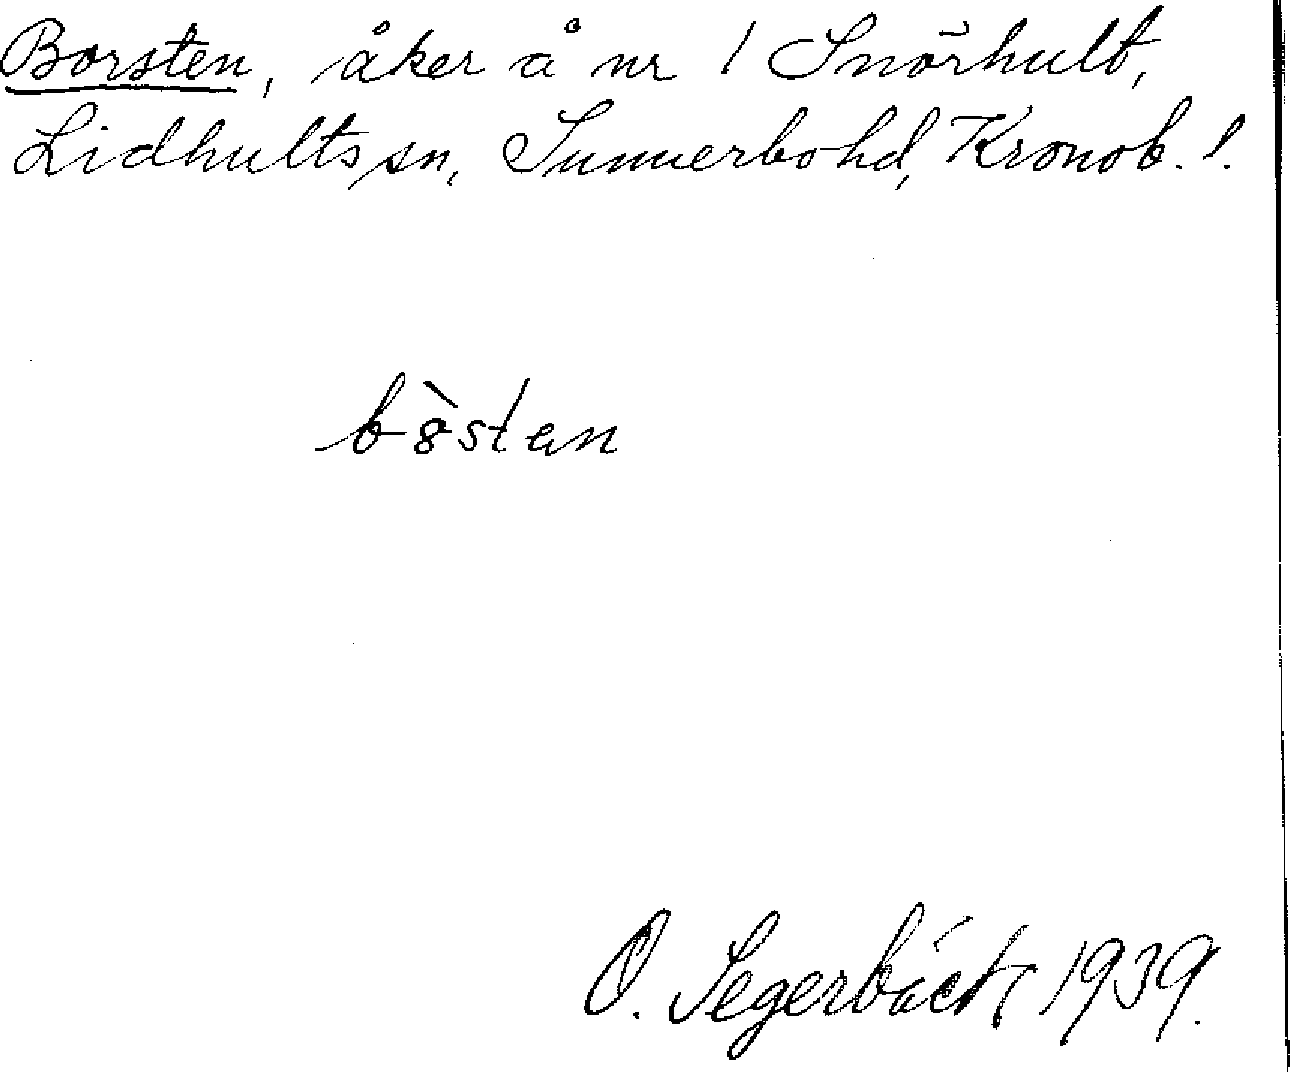 Borsten, åker å nr 1 Snörhult,
Lidhults sn, Sunnerbo hd, Kronob. l.
bòstan
O. Segerbäck 1939.